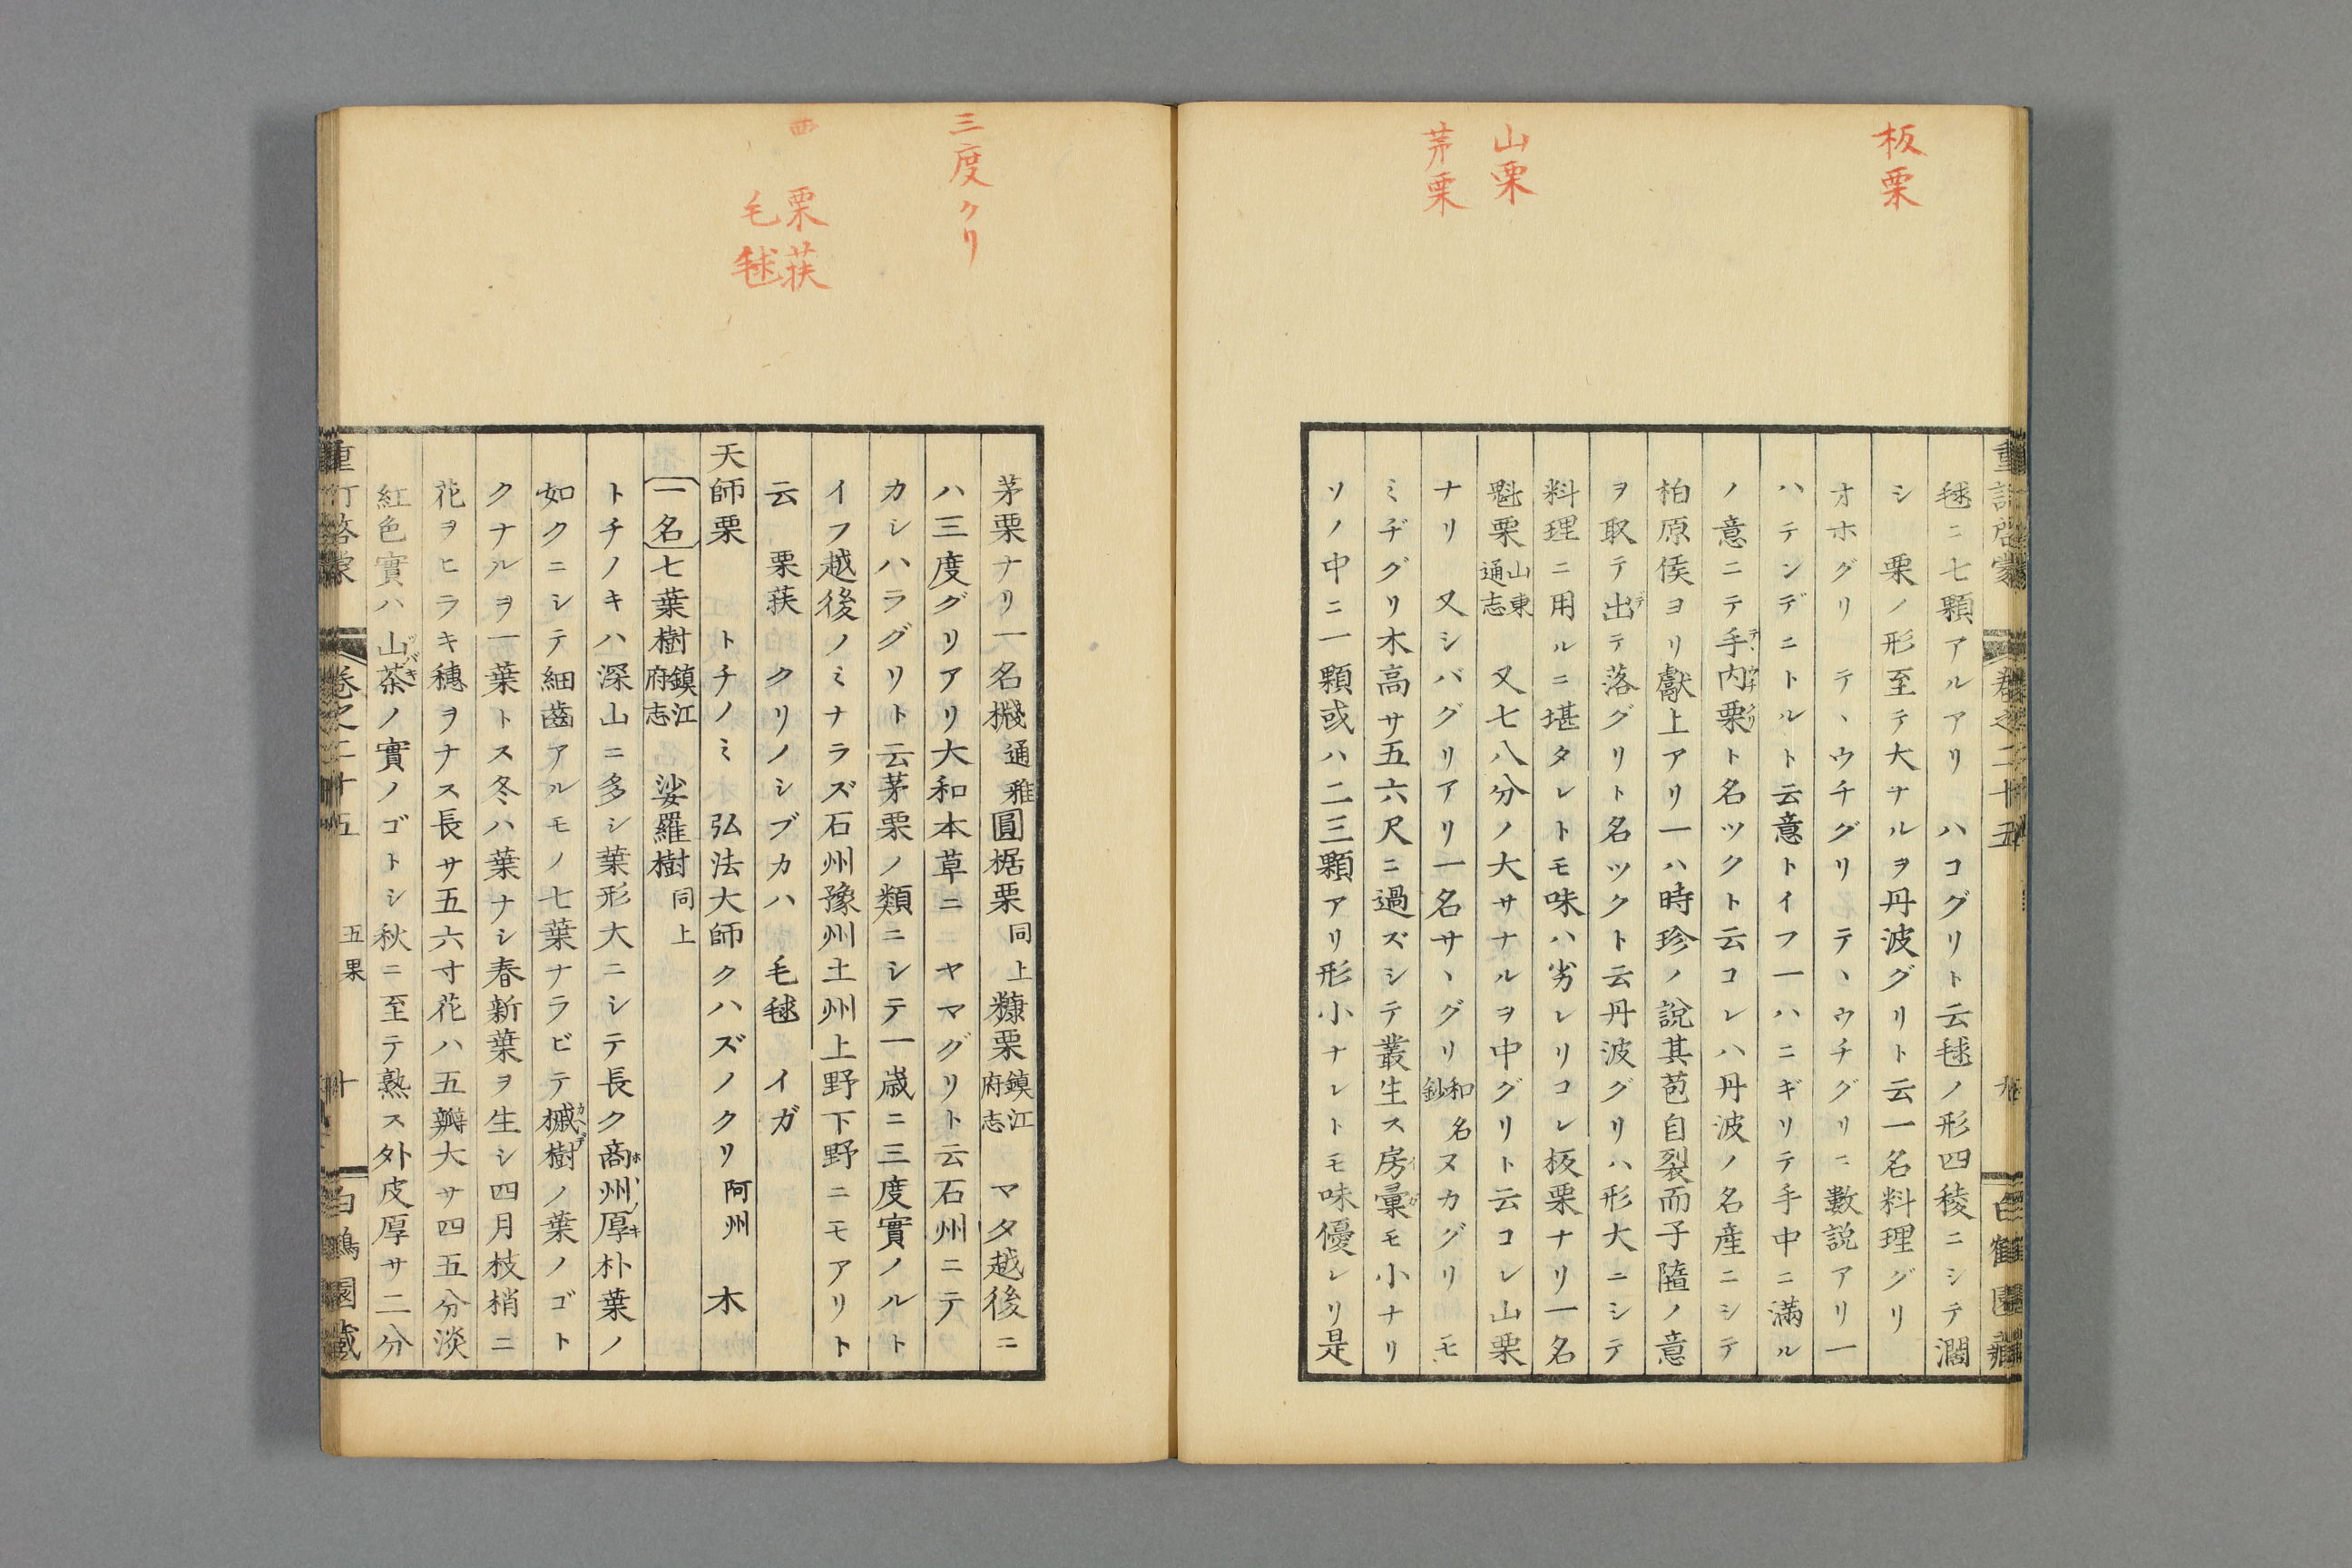 板栗
山栗
茅栗
毬ニ七顆アルアリ　ハコグリト云毬ノ形四稜ニシテ濶
シ　栗ノ形至テ大ナルヲ丹波グリト云一名料理グリ
オホグリ　テヽウチグリ　テヽウチグリニ數説アリ一
ハテンデニトルト云意トイフ一ハニギリテ手中ニ滿ル
ノ意ニテ手内栗ト名ツクト云コレハ丹波ノ名産ニシテ
柏原侯ヨリ獻上アリ一ハ時珍ノ說其苞自裂而子隨ノ意
ヲ取テ出テ落グリト名ツクト云丹波グリハ形大ニシテ
料理ニ用ルニ堪タレトモ味ハ劣レリコレ板栗ナリ一名
魁栗 山東通志　又七八分ノ大サナルヲ中グリト云コレ山栗
ナリ　又シバグリアリ一名サヽグリ 和名鈔 ヌカグリ　モ
ミヂグリ木高サ五六尺ニ過ズシテ叢生ス房彙モ小ナリ
ソノ中ニ一顆或ハ二三顆アリ形小ナレトモ味優レリ是
卷之二十五
白鶴園藏
三度クリ
栗荴
毛毬
茅栗ナリ一名㭫 通雅 圓椐栗 同上 糠栗 鎮江府志　マタ越後ニ
ハ三度グリアリ大和本草ニヤマグリト云石州ニテ
カシハラグリト云茅栗ノ類ニシテ一歳ニ三度實ノルト
イフ越後ノミナラズ石州豫州土州上野下野ニモアリト
云　栗荴　クリノシブカハ　毛毬　イガ
天師栗　トチノミ　弘法大師クハズノクリ 阿州　木
一名 七葉樹 鎮江府志　娑羅樹 同上
トチノキハ深山ニ多シ葉形大ニシテ長ク商州厚朴葉ノ
如クニシテ細齒アルモノ七葉ナラビテ槭樹ノ葉ノゴト
クナルヲ一葉トス冬ハ葉ナシ春新葉ヲ生シ四月枝梢ニ
花ヲヒラキ穗ヲナス長サ五六寸花ハ五瓣大サ四五分淡
紅色實ハ山茶ノ實ノゴトシ秋ニ至テ熟ス外皮厚サ二分
卷之二十五　五果　十